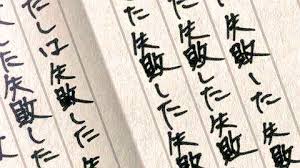 した失敗した失敗
失敗した失敗した
失敗した失敗した
たしは失敗した失敗した
した失敗した